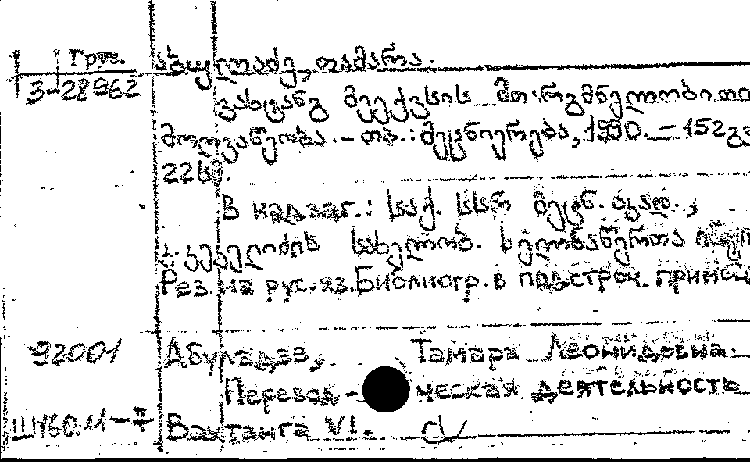 Груз. აბულაძე, თამარა.
3-28962
ვახტანგ მეექვსის მთარგმნელობითი
მოღვაწეობა. – თბ.: მეცნიერება, 1990. – 152გვ
22სმ.
В надзаг.: საქ. სსრ მეცნ. აკად.,
კ. კეკელიძის სახელობ. ხელნაწერთა
Рез. на рус. яз. Библиогр. в подстроч. примеч.
92001 Абуладзе, Тамара Леонидовна.
Перевод- ческая деятельность
Вахтанга VI.